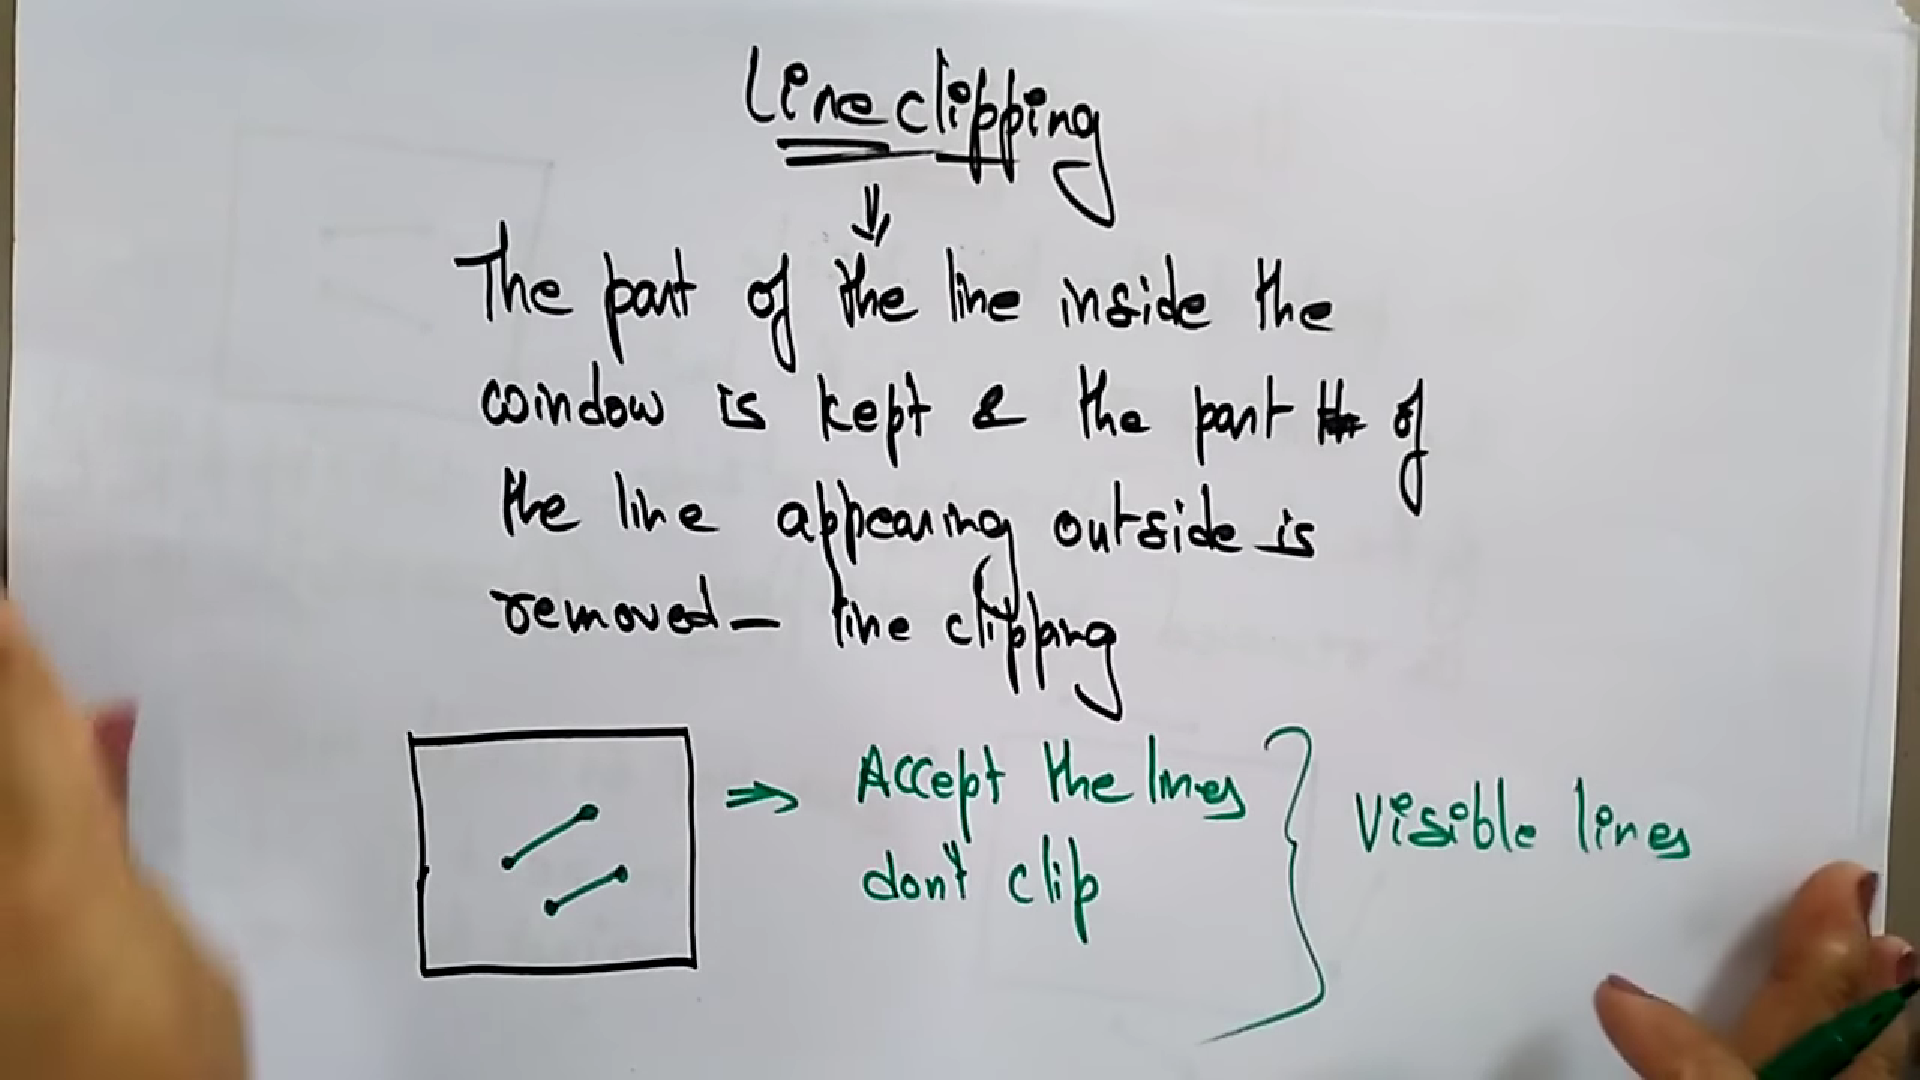 Line clipping
The part of the line inside the
window is kept & the part of
the line appearing outside is
removed - line clipping
Accept the lines
don't clip
Visible lines